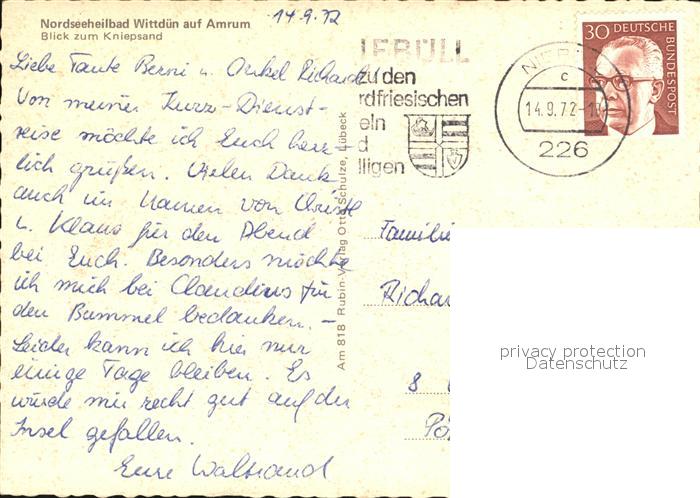 Nordseeheilbad Wittdün auf Amrum
Blick zum Kniepsand
14.9.72
Liebe Tante Berni u. Onkel Richard!
Von meiner Kurz-Dienst-
reise möchte ich Euch herz-
lich grüßen. Vielen Dank
auch im Namen von Christl
u. Klaus für den Abend
bei Euch. Besonders möchte
ich mich bei Claudius für
den Bummel bedanken. –
Leider kann ich hier nur
einige Tage bleiben. Es
würde mir recht gut auf der
Insel gefallen.
Eure Waltraud
Am 818 Rubin-Verlag Otto Schulze, Lübeck
IEBÜLL
zu den
rdfriesischen
eln
d
lligen
NIEB
c
14.9.72-18
226
30 DEUTSCHE
BUNDESPOST
Familie
Richar
8
privacy protection
Datenschutz